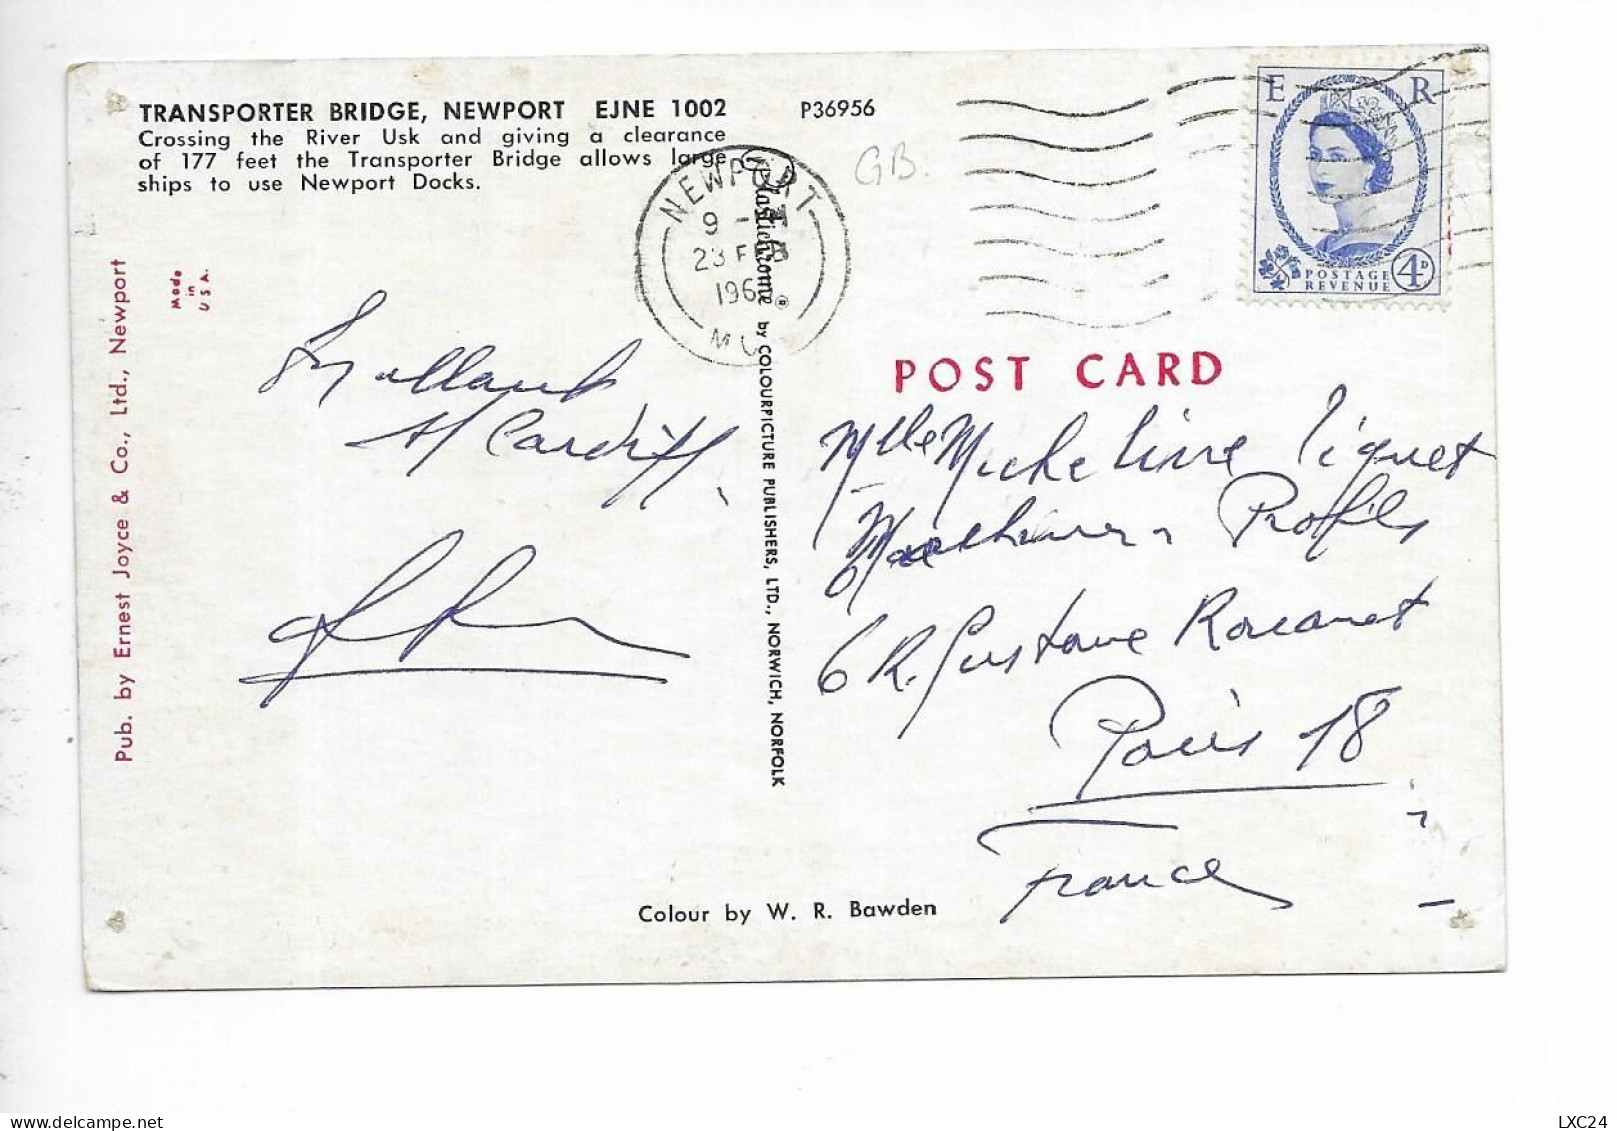 TRANSPORTER BRIDGE, NEWPORT EJNE 1002 P36956
Crossing the River Usk and giving a clearance
of 177 feet the Transporter Bridge allows large
ships to use Newport Docks.
GB.
NEWPORT
9 -
23 FEB
196
E R
POSTAGE
REVENUE
4D
Made
in
U S A.
Pub. by Ernest Joyce & Co., Ltd., Newport
Plastichrome ® by COLOURPICTURE PUBLISHERS, LTD., NORWICH, NORFOLK
POST CARD
Cardiff
Mlle Micheline
Profils
6 R. Gustave Rouanet
Paris 18
France
Colour by W. R. Bawden
LXC24